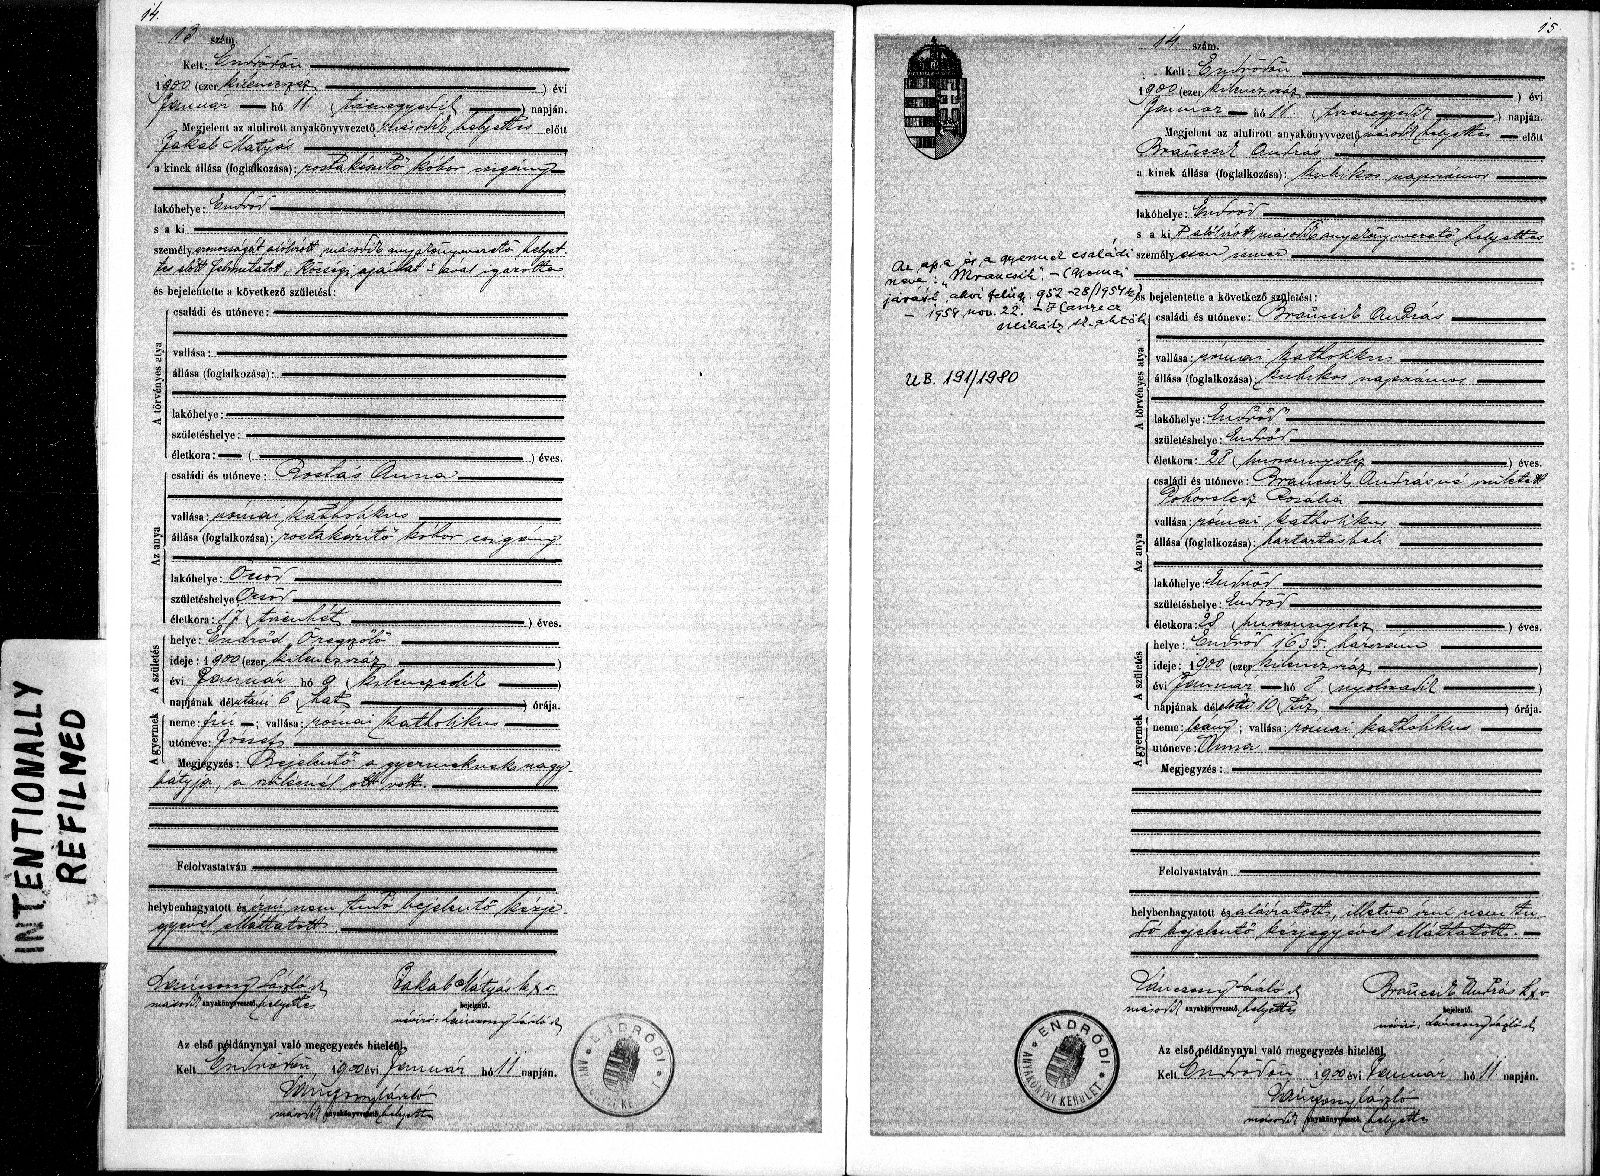 14.
13 szám.
Kelt: Endrődön
1900 (ezer kilenczszáz) évi
Januar hó 11 (tizenegyedik) napján.
Megjelent az alulirott anyakönyvvezető második helyettes előtt
Jakab Mátyás
a kinek állása (foglalkozása): rostakészitő kóbor czigány
lakóhelye: Endrőd
s a ki
személyazonosságát alulirott második anyakönyvvezető helyet-
tes előtt felmutatott községi igazolta
és bejelentette a következő születést:
A törvényes atya
családi és utóneve:
vallása:
állása (foglalkozása):
lakóhelye:
születéshelye:
életkora: ( ) éves.
Az anya
családi és utóneve: Rostás Anna
vallása: római katholikus
állása (foglalkozása): rostakészitő kóbor czigány
lakóhelye: Öcsöd
születéshelye: Öcsöd
életkora: 17 (tizenhét) éves.
A születés
helye: Endrőd Öregszőlő
ideje: 1900 (ezer kilenczszáz)
évi Januar hó 9 (kilenczedik)
napjának délutáni 6 (hat) órája.
A gyermek
neme: fiú; vallása: római katholikus
utóneve: József
Megjegyzés: Bejelentő a gyermeknek nagy-
bátyja, a szülésnél ott volt.
Felolvastatván
helybenhagyatott és irni nem tudó bejelentő kézje-
gyével elláttatott.
Jakab Mátyás k x v
második anyakönyvvezető helyettes
bejelentő.
Az első példánynyal való megegyezés hiteléül.
Kelt Endrődön, 1900 évi Január hó 11 napján.
második anyakönyvvezető helyettes
ENDRŐDI
INTENTIONALLY
REFILMED
15
14 szám.
Kelt: Endrődön
1900 (ezer kilenczszáz) évi
Januar hó 11 (tizenegyedik) napján.
Megjelent az alulirott anyakönyvvezető második helyettes előtt
Braucsik András
a kinek állása (foglalkozása): kubikos napszámos
lakóhelye: Endrőd
s a kit alólirott második anyakönyvvezető helyettes
személyesen ismer
és bejelentette a következő születést:
Az apa és a gyermek családi
neve: "Mrancsik" –
952-28/1954
– 1954 nov. 22. –
UB. 191/1980
A törvényes atya
családi és utóneve: Braucsik András
vallása: római katholikus
állása (foglalkozása): kubikos napszámos
lakóhelye: Endrőd
születéshelye: Endrőd
életkora: 28 (huszonnyolcz) éves.
Az anya
családi és utóneve: Braucsik Andrásné született
Rozália
vallása: római katholikus
állása (foglalkozása): háztartásbeli
lakóhelye: Endrőd
születéshelye: Endrőd
életkora: 28 (huszonnyolcz) éves.
A születés
helye: Endrőd 1635 házszám
ideje: 1900 (ezer kilenczszáz)
évi Januar hó 8 (nyolczadik)
napjának délelőtti 10 (tiz) órája.
A gyermek
neme: leány; vallása: római katholikus
utóneve: Anna
Megjegyzés:
Felolvastatván
helybenhagyatott és aláiratott, illetve irni nem tu-
dó bejelentő kézjegyével elláttatott.
Braucsik András k x v
második anyakönyvvezető helyettes
bejelentő.
Az első példánynyal való megegyezés hiteléül.
Kelt Endrődön 1900 évi Januar hó 11 napján.
második anyakönyvvezető helyettes
ENDRŐDI
ANYAKÖNYVI KERÜLET